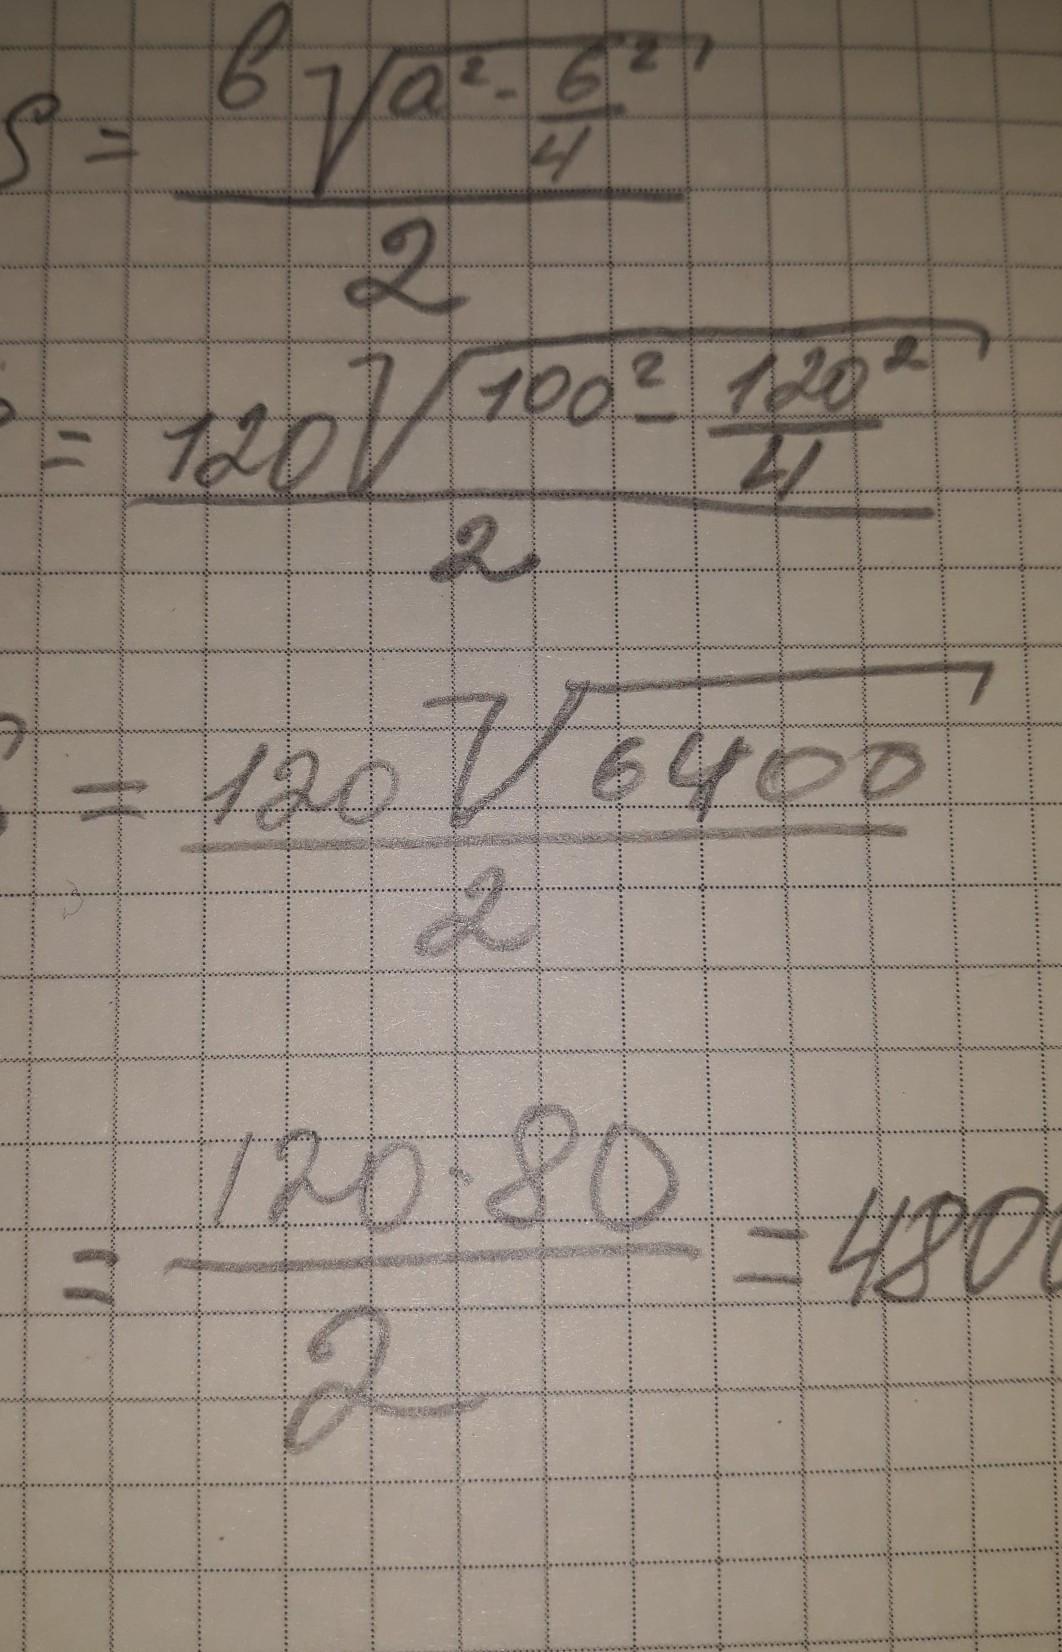 S = b√(a² - b²/4) / 2
= 120√(100² - 120²/4) / 2
= 120√6400 / 2
= 120·80 / 2 = 4800